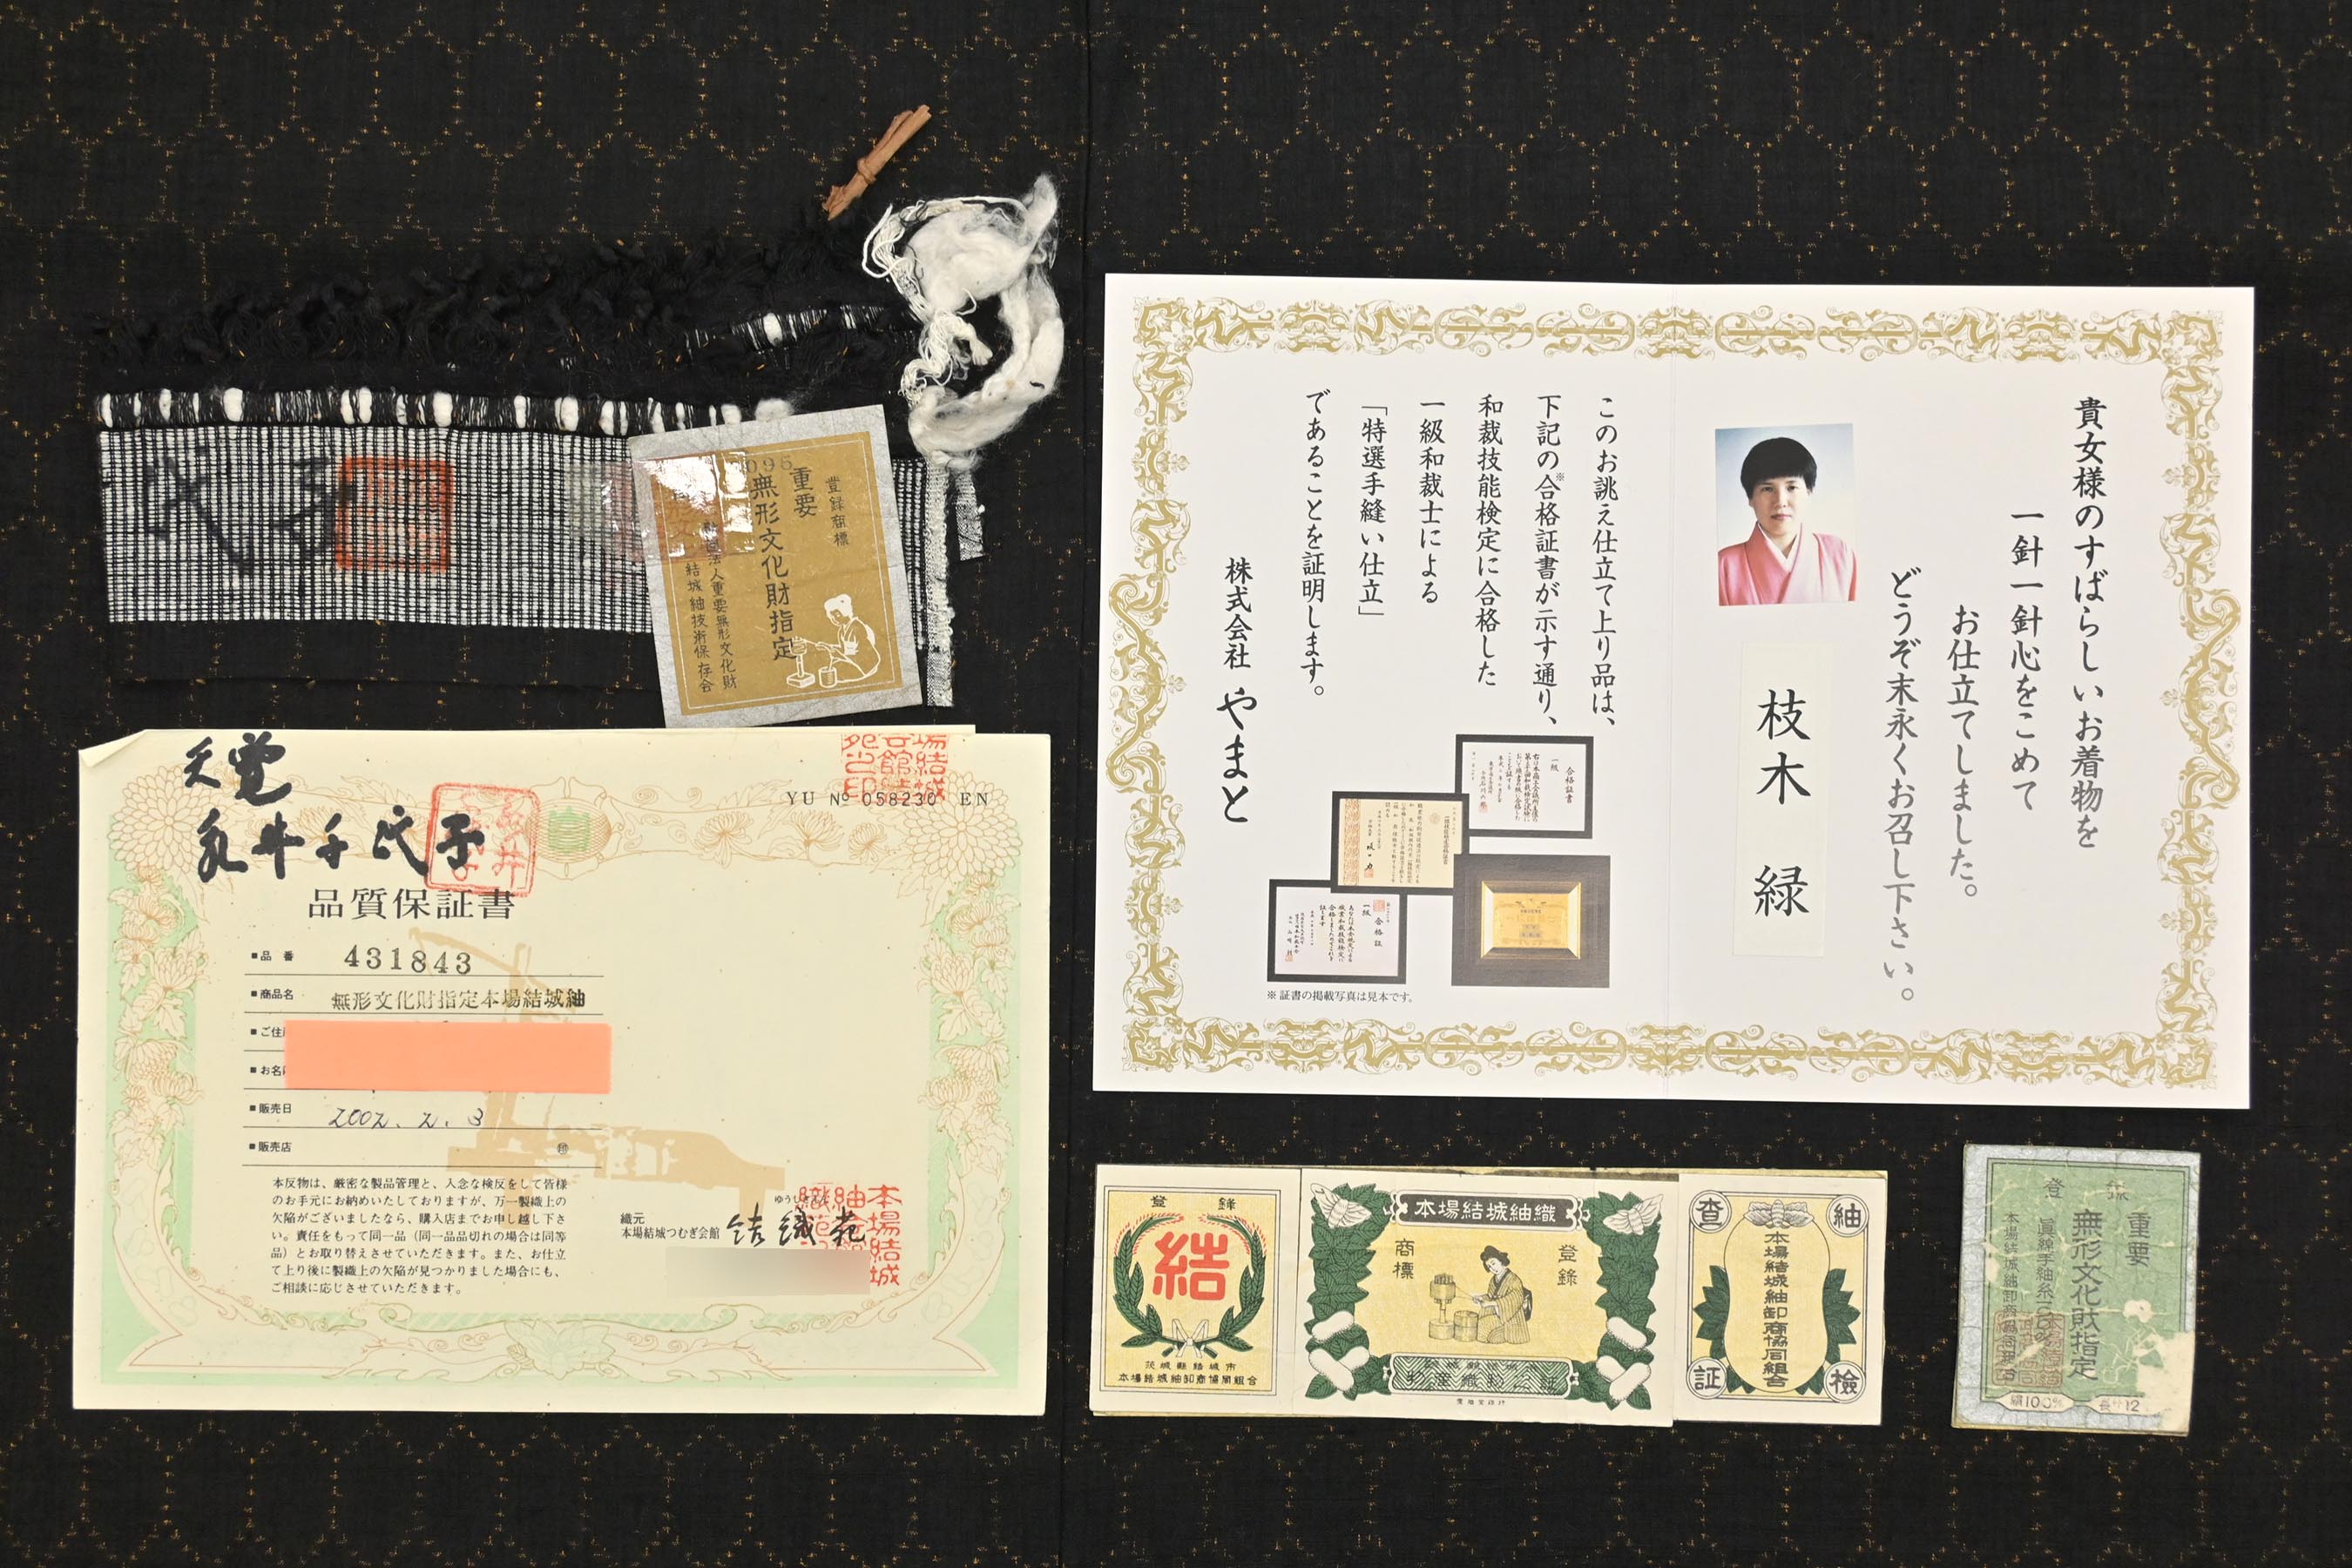 登録商標
重要
無形文化財指定
結城紬技術保存会
YU № 058230 EN
品質保証書
■品番 431843
■商品名 無形文化財指定本場結城紬
■ご住
■お名
■販売日 2002.2.3
■販売店
本反物は、厳密な製品管理と、入念な検反をして皆様
のお手元にお納めいたしておりますが、万一製織上の
欠陥がございましたなら、購入店までお申し越し下さ
い。責任をもって同一品（同一品品切れの場合は同等
品）とお取り替えさせていただきます。また、お仕立
て上り後に製織上の欠陥が見つかりました場合にも、
ご相談に応じさせていただきます。
織元
本場結城つむぎ会館 結織苑
貴女様のすばらしいお着物を
一針一針心をこめて
お仕立てしました。
どうぞ末永くお召し下さい。
枝木 緑
このお誂え仕立て上り品は、
下記の※合格証書が示す通り、
和裁技能検定に合格した
一級和裁士による
「特選手縫い仕立」
であることを証明します。
株式会社 やまと
合格証書
一級
合格証
一級
※証書の掲載写真は見本です。
登録
結
茨城縣結城市
本場結城紬卸商協同組合
本場結城紬織
登録
商標
査
紬
本場結城紬卸商協同組合
証
検
登録
重要
無形文化財指定
絹100%
長サ12